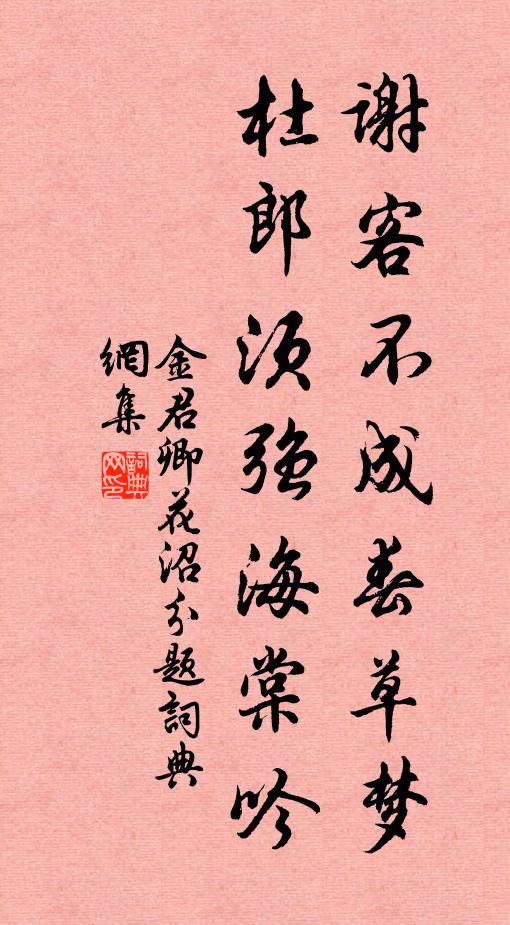 谢客不成春草梦
杜郎须强海棠吟
金君卿花沼分题词典
網集
詞典網印